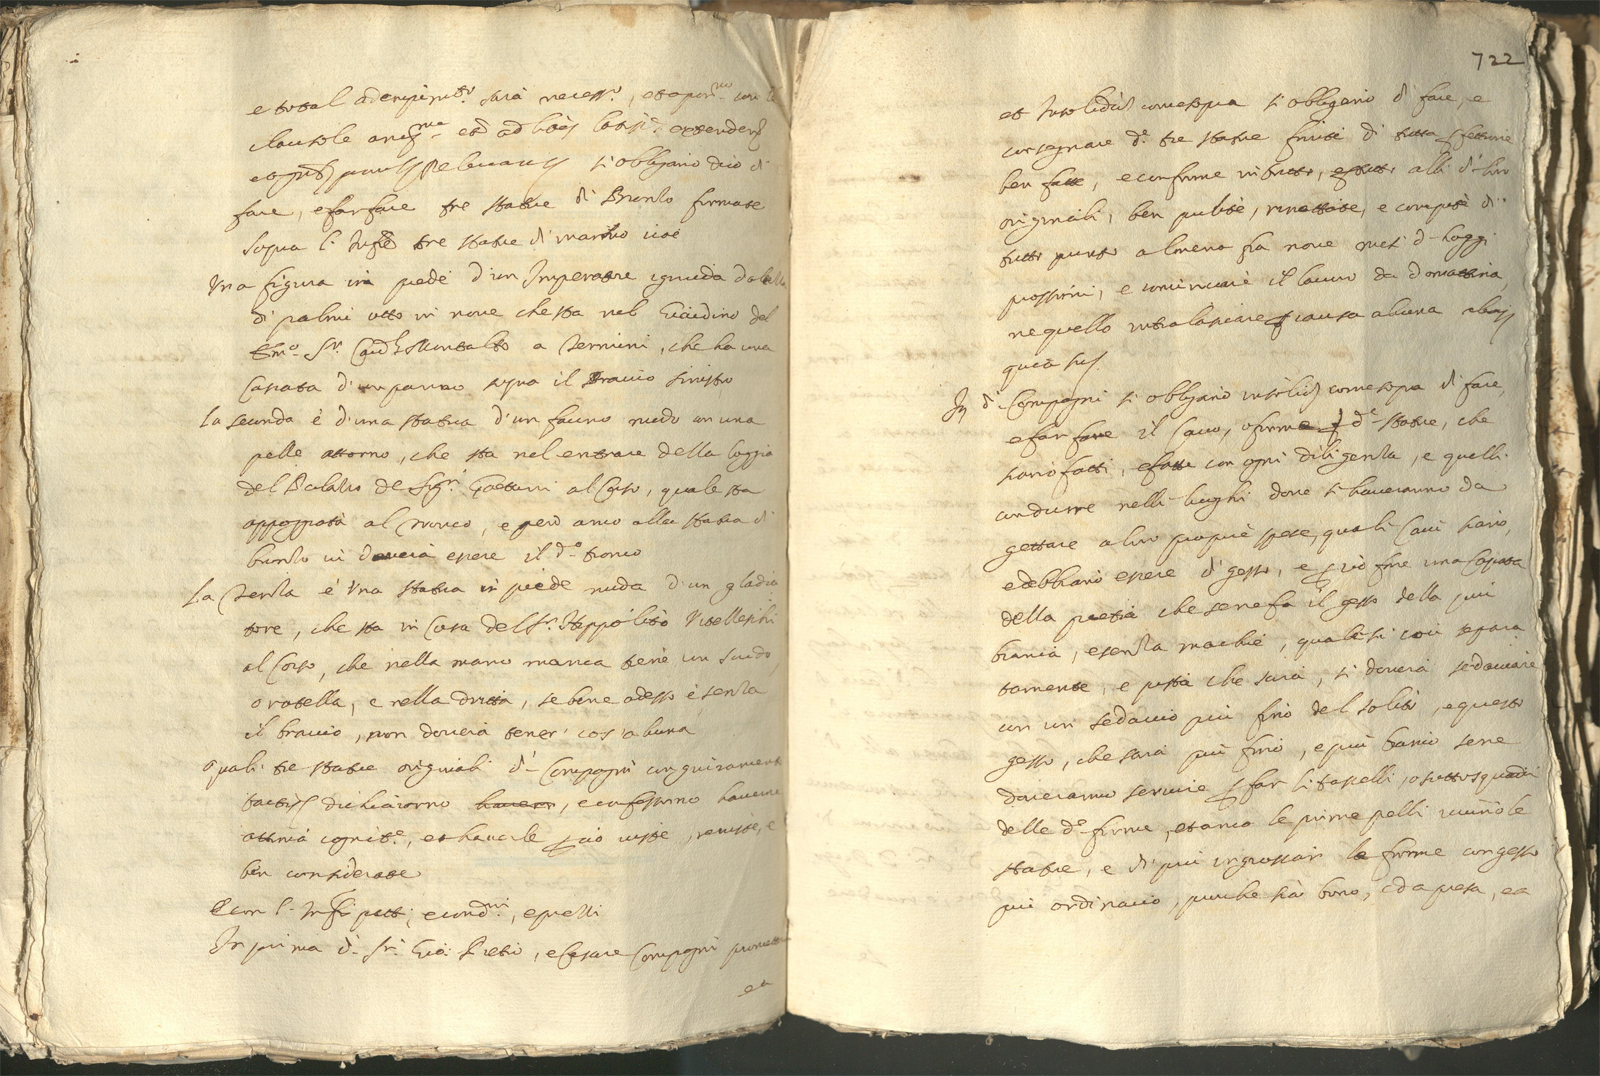 e total adempimto sarà necessro, et a por
clausole
si obligano di
fare, e far fare tre statue di Bronzo formate
sopra l'infre tre statue di marmo cioè
Una figura in piedi d'un Imperatore ignuda
di palmi otto in nove che sta nel Giardino del
Emo Sr Card. Montalto a Termini, che ha una
cascata d'un panno sopra il Braccio sinistro
La seconda è d'una statua d'un fauno nudo con una
pelle attorno, che sta nel entrare della loggia
del Palazzo de Sigri Gaetani al Corso, quale sta
appoggiata al tronco, e però anco alla statua di
bronzo vi doverà essere il do tronco
La Terza è Una statua in piede nuda d'un gladia
tore, che sta in Casa del Sr Hippolito Vitelleschi
al Corso, che nella mano manca tene un scudo,
o rotella, e nella dritta, se bene adesso è senza
il braccio, non doverà tener cos'alcuna
Quali tre statue originali di Compagni con giuramento
tactis dichiarorno haver, e confessorno haverne
ottima cognite, et haverle per ciò viste, reviste, e
ben considerate
E con l'infri patti, e condni, e quelli
In prima di Sri Gio: Pietro, e Cesare Compagni promettono
et
722
et Insolidum come sopra si obligano di fare, e
consegnare de tre statue finite di tutta perfettione
ben fatte, e conforme in tutto, e per tutto alli di loro
originali, ben pulite, rinettate, e compite di
tutto punto almeno fra nove mesi d'hoggi
prossimi, e cominciare il lavoro da domattina,
ne quello intralasciare per causa alcuna
quia sic
It. di Compagni si obligano insolidum come sopra di fare,
e far fare il Cavo, o forme per de statue, che
siano fatti, e fatte con ogni diligenza, e quelli
condurre nelli luoghi dove si haveranno da
gettare a loro proprie spese, quali Cavi siano,
e debbiano essere di gesso, e per ciò fare una Capata
della pietra che se ne fa il gesso della più
bianca, e senza machie, quale si cocci separa
tamente, e pista che sarà, si doverà sedacciare
con un sedaccio più fino del solito, e questo
gesso, che sarà più fino, e più bianco se ne
doveranno servire per far li tasselli, o sottosquadri
delle de forme, et anco le prime pelli vicino le
statue, e di più ingrossar le forme con gesso
più ordinario, purche sia bono, e da presa, et